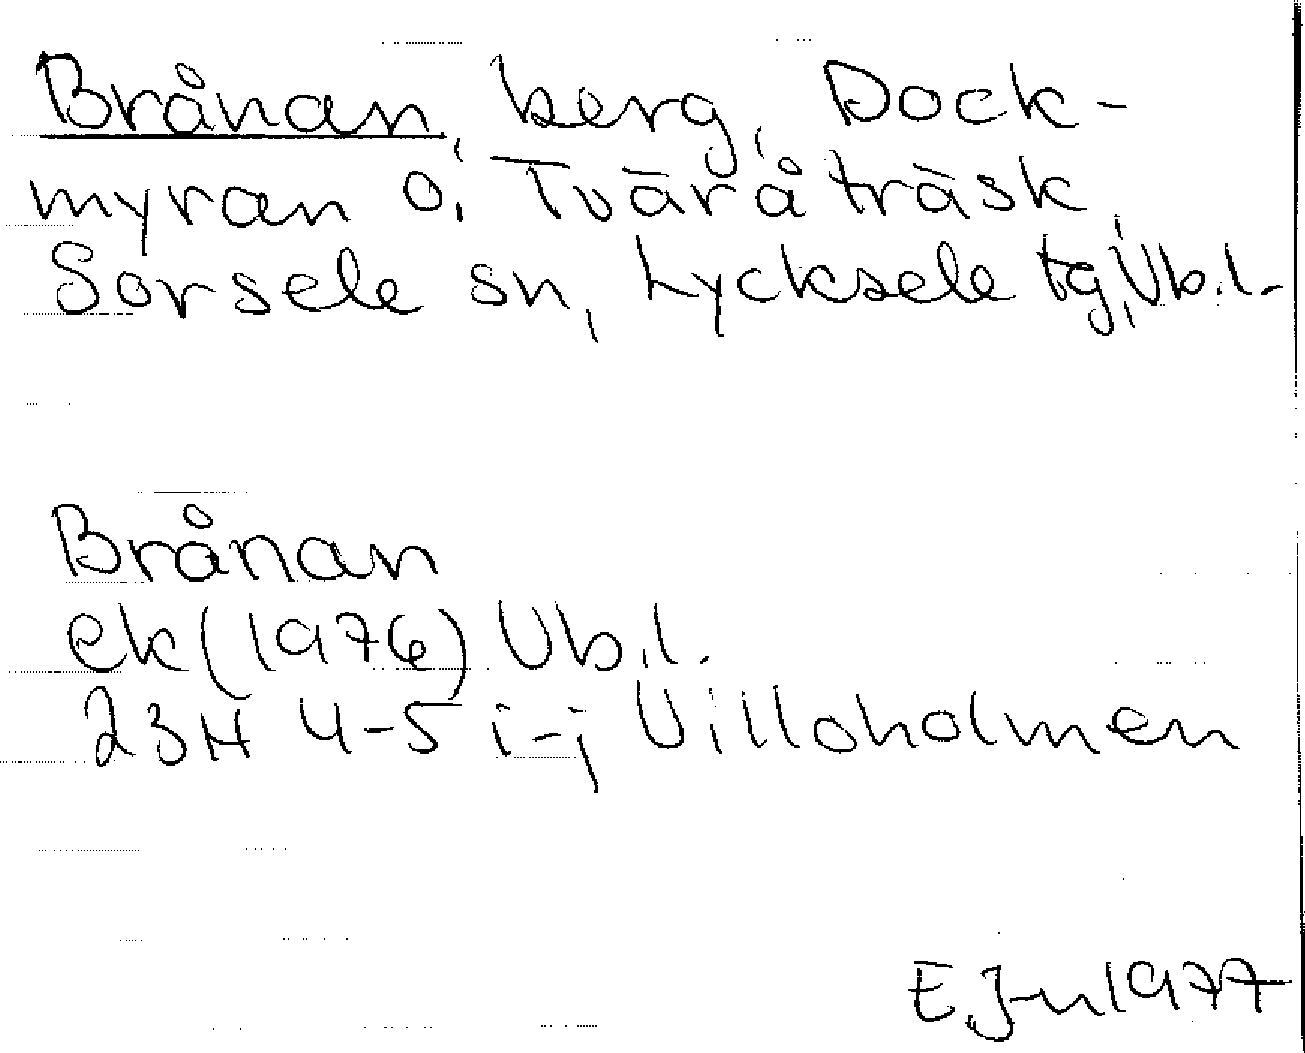 Brånan, berg, Dock-
myran o, Tvāråträsk,
Sorsele sn, Lycksele tg, Vb.l.
Brånan
ek (1976) Vb.l.
23H 4-5 i-j Villoholmen
E.J-n 1977